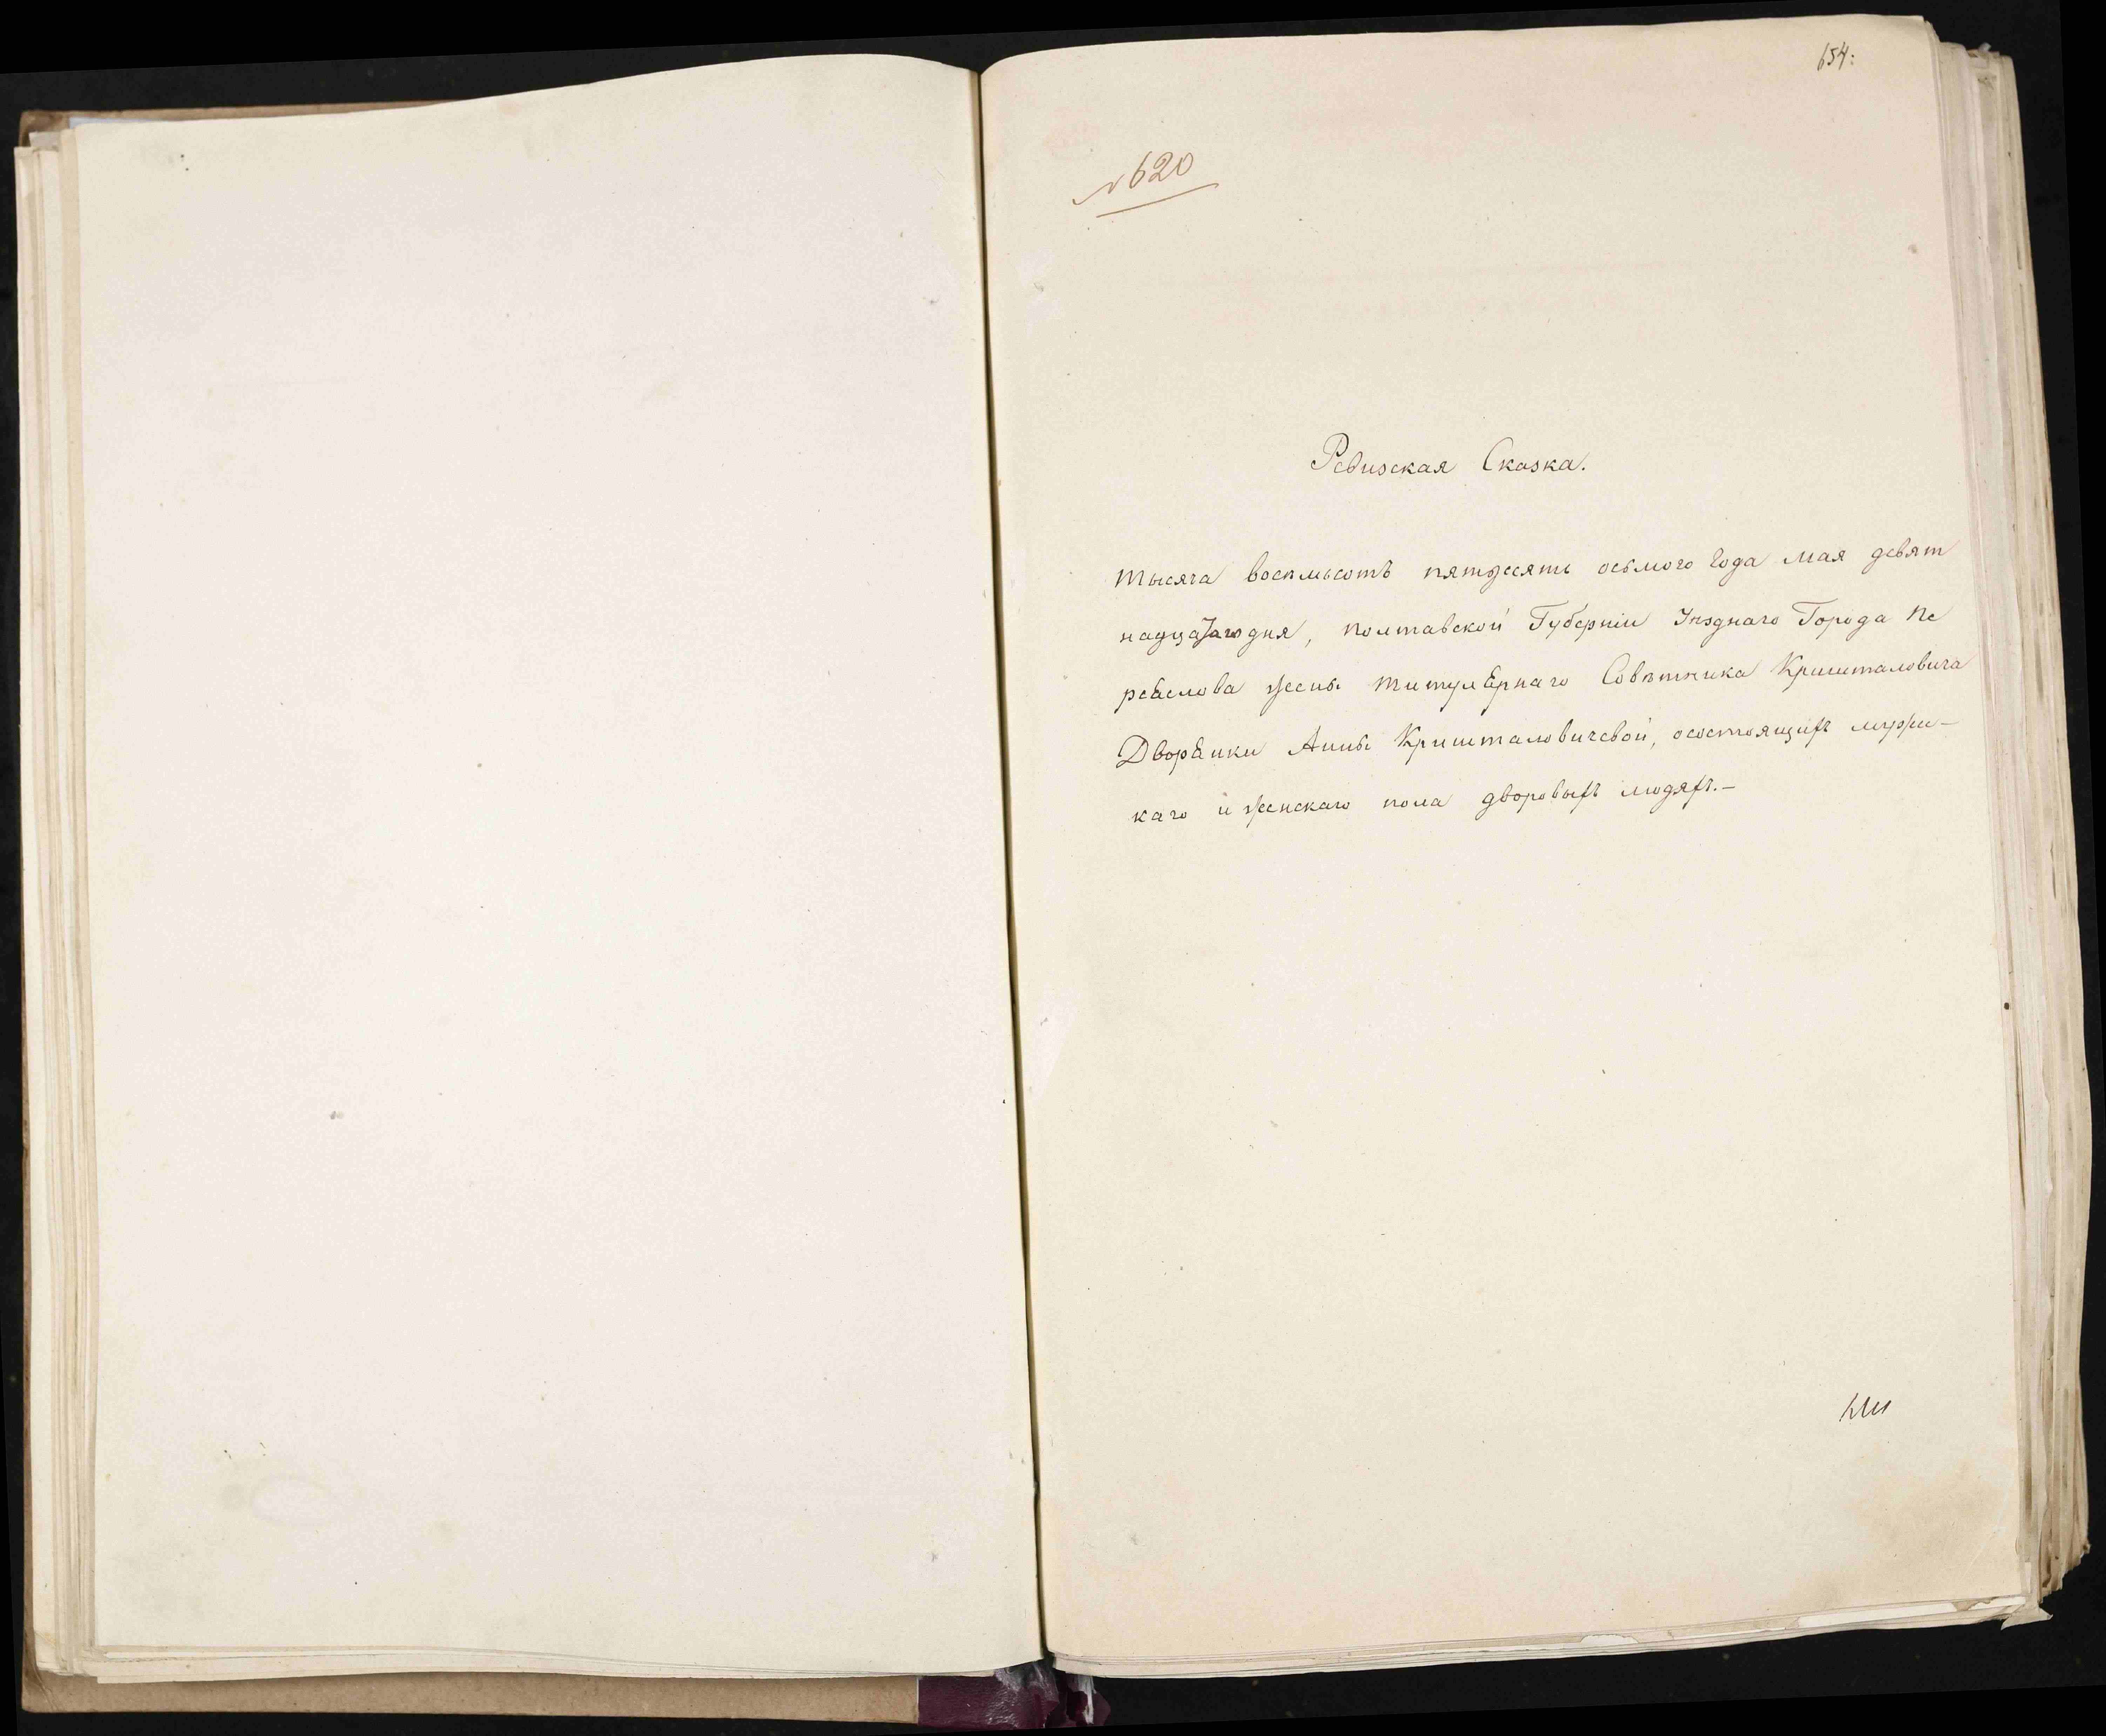 654:
№620
Ревизская Сказка.
тысяча восемьсотъ пятдесять осьмого года мая девят
надцатаго дня, полтавской Губерніи Уѣзднаго Города Пе
реяслова жены титулярнаго Совѣтника Кришталовича
Дворянки Анны Кришталовичевой, осостоящихъ мужи-
каго и женскаго пола дворовыхъ людяхъ.-